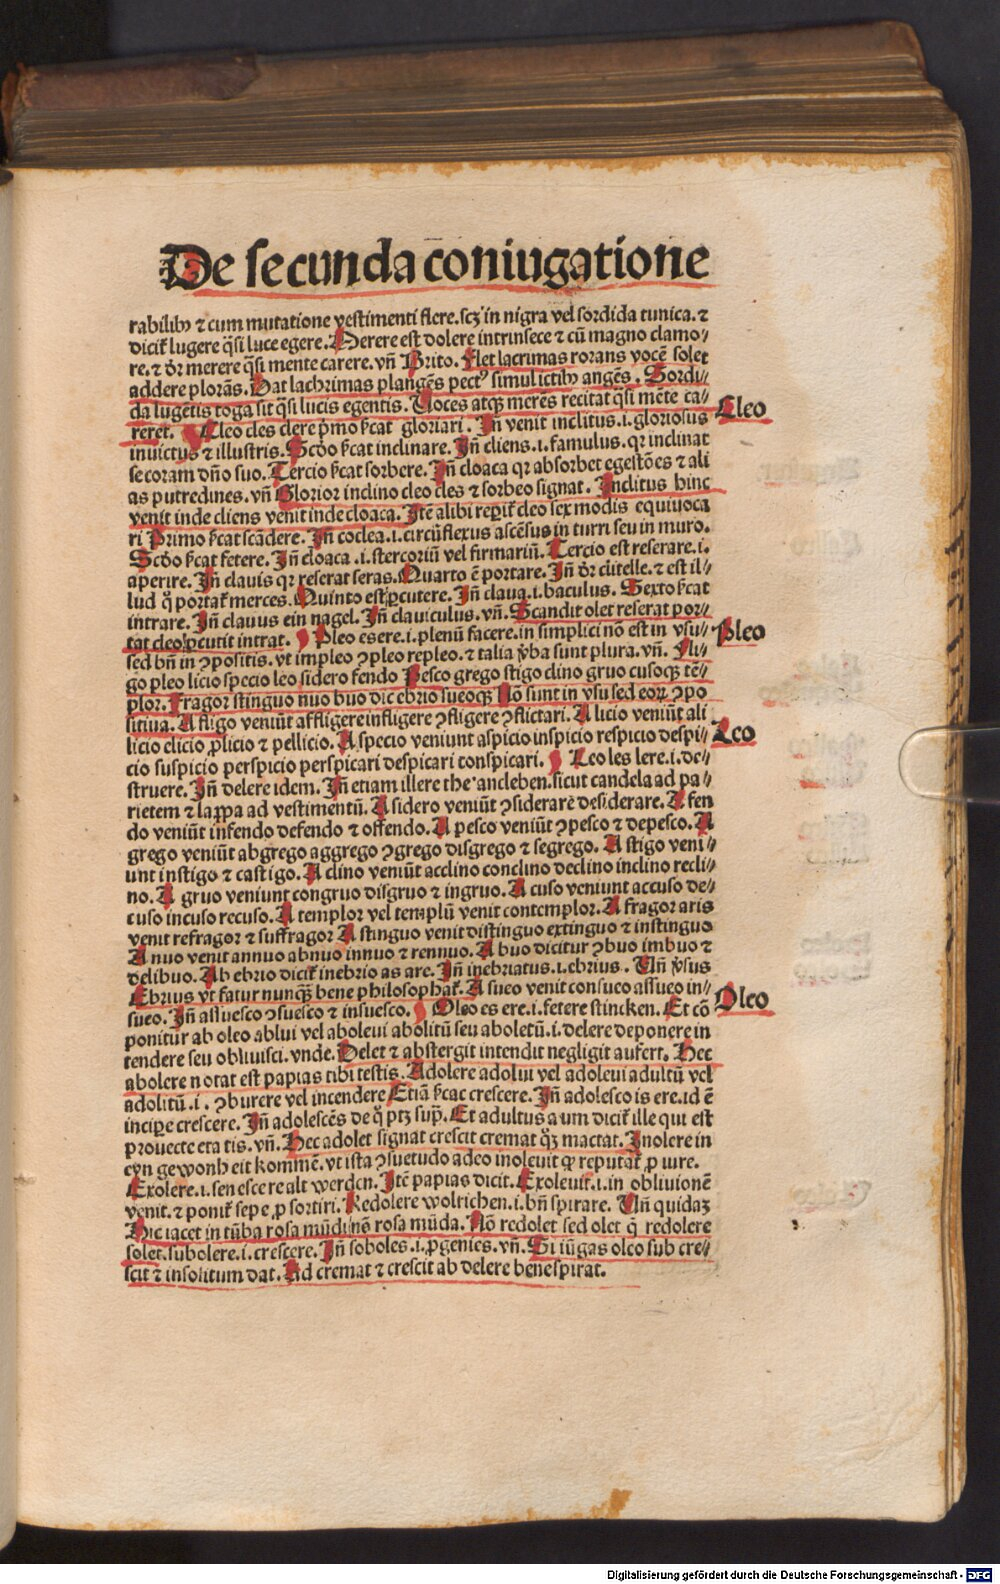 De secunda coniugatione
rabilibꝰ ⁊ cum mutatione vestimenti flere.scꝫ in nigra vel sordida tunica.⁊
dicit̃ lugere q̃si luce egere. Merere est dolere intrinsece ⁊ cũ magno clamo⸗
re.⁊ d̃r merere q̃si mente carere. vñ Brito. Flet lacrimas rorans vocẽ solet
addere plorãs. Dat lachrimas plangẽs pectꝰ simul ictibꝰ angẽs. Sordi⸗
da lugetis toga sit q̃si lucis egentis. Voces atqꝫ merẽs recitat q̃si mẽte ca⸗
reret. Cleo cles clere p̃mo s̃cat gloriari. Jñ venit inclitus.i.gloriosus
Cleo
invictus ⁊ illustris. Scd̃o s̃cat inclinare. Jñ cliens.i.famulus.qr inclinat
se coram dño suo. Tercio s̃cat sorbere. Jñ cloaca qr absorbet egestões ⁊ ali
as putredines. vñ Glorior inclino cleo cles ⁊ sorbeo signat. Jnclitus hinc
venit inde cliens venit inde cloaca. Jtẽ alibi reperit̃ cleo sex modis equiuoca
ri Primo s̃cat scãdere. Jñ coclea.i.circũflexus ascẽsus in turri seu in muro.
Scd̃o s̃cat fetere. Jñ cloaca.i.stercoriũ vel firmariũ. Tercio est reserare.i.
aperire. Jñ clauis qr reserat seras. Quarto ẽ portare. Jñ d̃r clitelle.⁊ est il⸗
lud q̃ portat̃ merces. Quinto est ꝑcutere. Jñ claua.i.baculus. Sexto s̃cat
intrare. Jñ clauus ein nagel. Jñ clauiculus. vñ. Scandit olet reserat por⸗
tat cleo ꝑcutit intrat. Pleo es ere.i.plenũ facere.in simplici nõ est in vsu⸗
Pleo
sed bñ in ꝯpositis.vt impleo ꝯpleo repleo.⁊ talia v̓ba sunt plura.vñ. Fli⸗
go pleo licio specio leo sidero fendo Pesco grego stigo clino gruo cusoqꝫ tẽ⸗
plor. Fragor stinguo nuo buo dic ebrio sueoqꝫ Nõ sunt in vsu sed eoꝝ ꝯpo
sitiua. A fligo veniũt affligere infligere ꝯfligere ꝯflictari. A licio veniũt ali
licio elicio ꝓlicio ⁊ pellicio. A specio veniunt aspicio inspicio respicio despi⸗
cio suspicio perspicio perspicari despicari conspicari. Leo les lere.i.de⸗
Leo
struere. Jñ delere idem. Jñ etiam illere the'ancleben.sicut candela ad pa⸗
rietem ⁊ lappa ad vestimentũ. A sidero veniũt ꝯsiderare desiderare. A fen
do veniũt infendo defendo ⁊ offendo. A pesco veniũt ꝯpesco ⁊ depesco. A
grego veniũt abgrego aggrego ꝯgrego disgrego ⁊ segrego. A stigo veni⸗
unt instigo ⁊ castigo. A clino veniũt acclino conclino declino inclino recli⸗
no. A gruo veniunt congruo disgruo ⁊ ingruo. A cuso veniunt accuso de⸗
cuso incuso recuso. A templor vel templũ venit contemplor. A fragor aris
venit refragor ⁊ suffragor A stinguo venit distinguo extinguo ⁊ instinguo
A nuo venit annuo abnuo innuo ⁊ rennuo. A buo dicitur ꝯbuo imbuo ⁊
delibuo. Ab ebrio dicit̃ inebrio as are. Jñ inebriatus.i.ebrius. Vñ v̓sus
Ebrius vt fatur nunqꝫ bene philosophat̃. A sueo venit consueo assueo in⸗
sueo. Jñ assuesco ꝯsuesco ⁊ insuesco. Oleo es ere.i.fetere stincken. Et cõ
Oleo
ponitur ab oleo ablui vel aboleui abolitũ seu aboletũ.i.delere deponere in
tendere seu obliuisci.vnde. Delet ⁊ abstergit intendit negligit aufert. Hec
abolere notat est papias tibi testis. Adolere adolui vel adoleui adultũ vel
adolitũ.i. ꝯburere vel incendere Etiã s̃cac crescere. Jñ adolesco is ere.id ẽ
incipe crescere. Jñ adolescẽs de q̃ ptꝫ sup̃. Et adultus a um dicit̃ ille qui est
prouecte eta tis.vñ. Hec adolet signat crescit cremat q̃ꝫ mactat. Jnolere in
eyn gewonheit kommẽ.vt ista ꝯsuetudo adeo inoleuit ꝙ reputat̃ ꝓ iure.
Exolere.i.senescere alt werden. Jtẽ papias dicit. Exoleuit.i.in obliuionẽ
venit.⁊ ponit̃ sepe ꝓ sortiri. Redolere wolrichen.i.bñ spirare. Vñ quidaꝫ
Hic iacet in tũba rosa mũdi nõ rosa mũda. Nõ redolet sed olet q̃ redolere
solet.subolere.i.crescere. Jñ soboles.i.ꝓgenies.vñ. Si iũgas oleo sub cre⸗
scit ⁊ insolitum dat. Ad cremat ⁊ crescit ab delere benespirat.
Digitalisierung gefördert durch die Deutsche Forschungsgemeinschaft - DFG